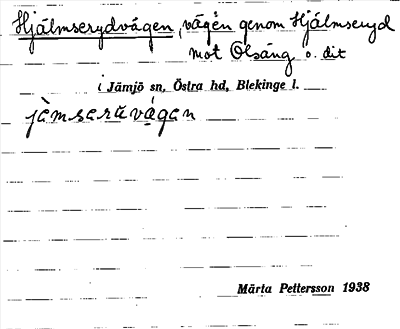 Hjälmserydvägen, vägen genom Hjälmseryd
mot Olsäng o. dit
i Jämjö sn, Östra hd, Blekinge l.
jèmserùvá̱gan
Märta Pettersson 1938